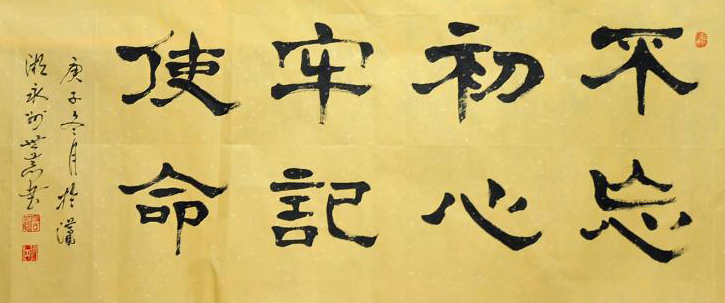 不忘
初心
牢記
使命
庚子冬月於瀟
湘永州世書